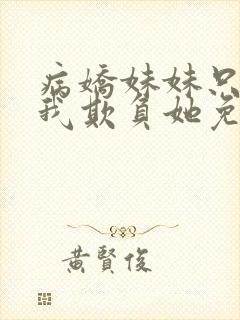 病嬌妹妹只
我欺負她免
黃賢俊